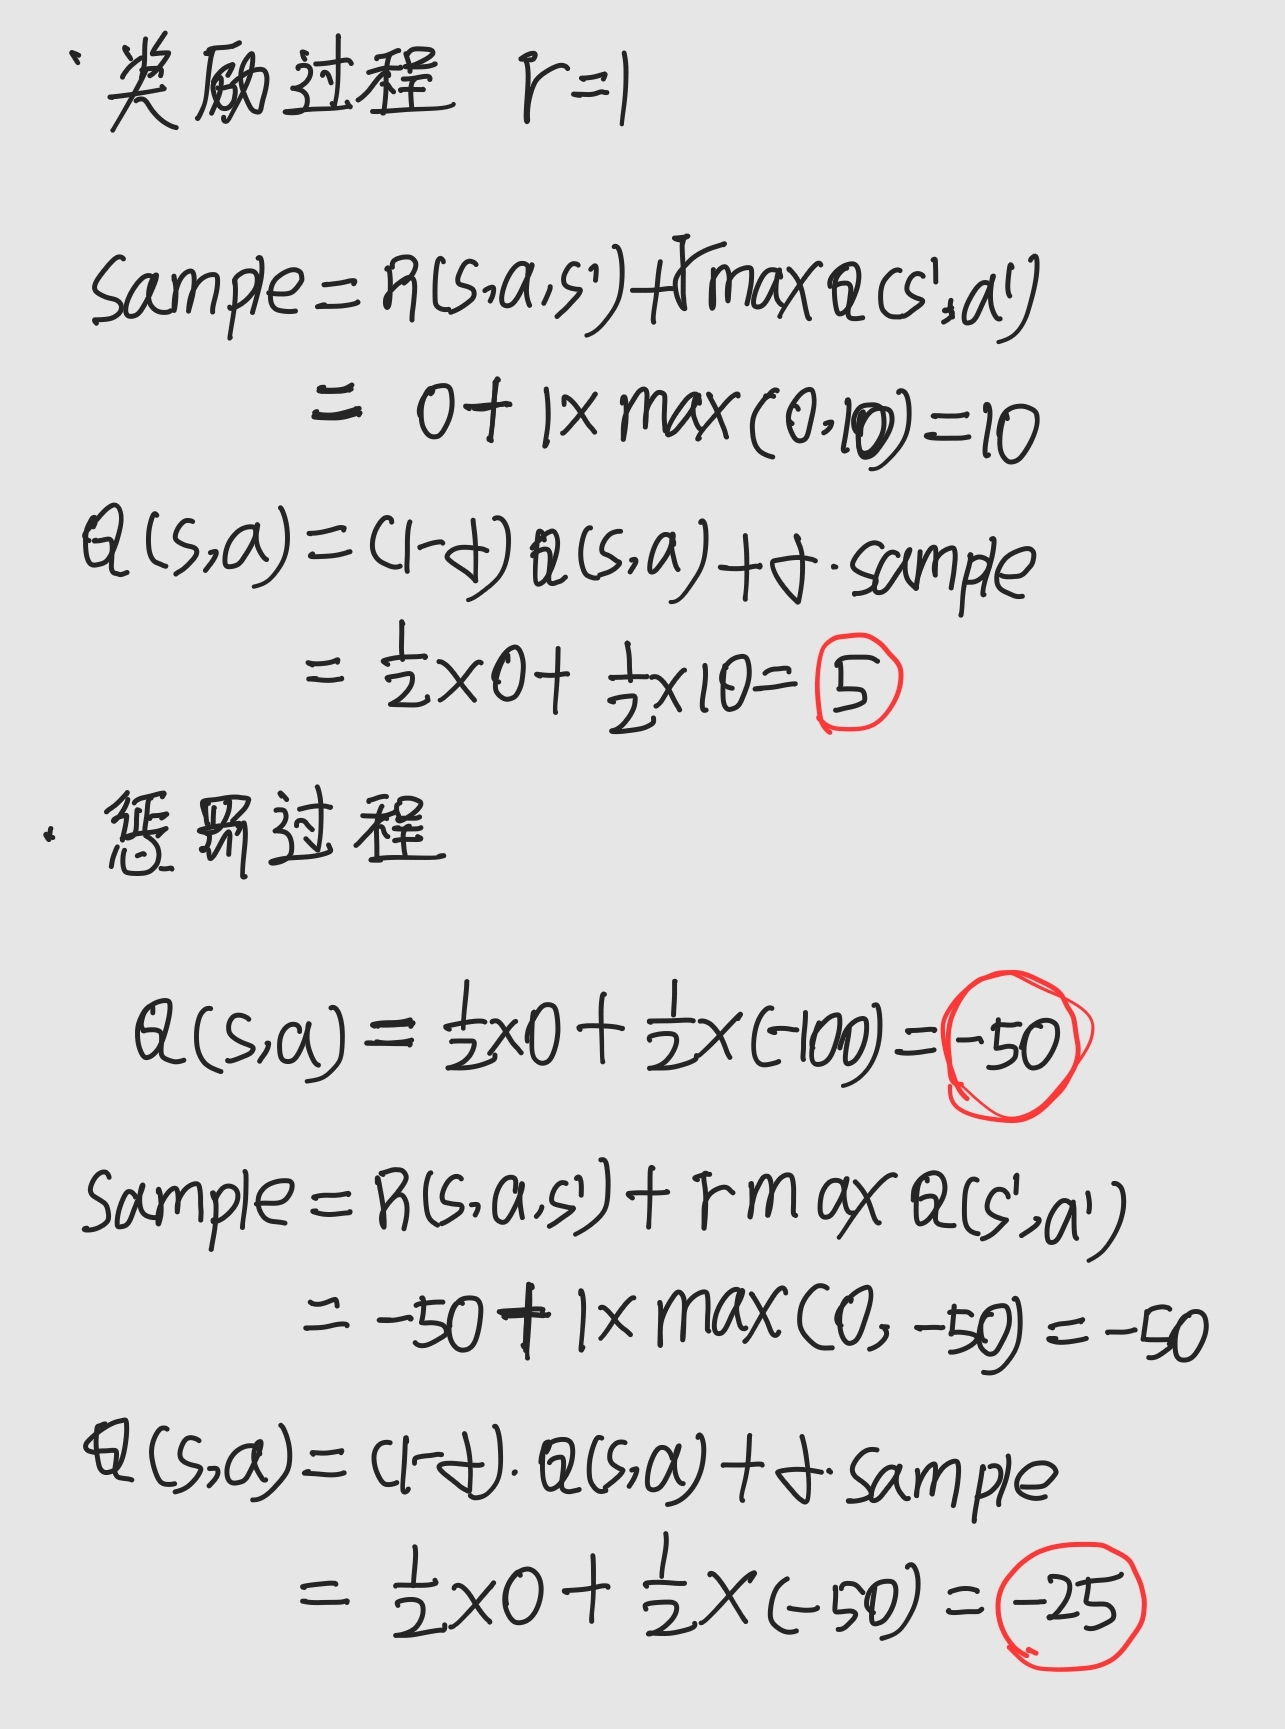 · 奖励过程 r=1
Sample = R(s,a,s')+rmaxQ(s',a')
= 0+1×max(0,10)=10
Q(s,a)=(1-α)Q(s,a)+α·sample
= 1/2×0+1/2×10=5
· 惩罚过程
Q(s,a)=1/2×0+1/2×(-100)=-50
Sample=R(s,a,s')+rmaxQ(s',a')
=-50+1×max(0,-50)=-50
Q(s,a)=(1-α)·Q(s,a)+α·sample
=1/2×0+1/2×(-50)=-25